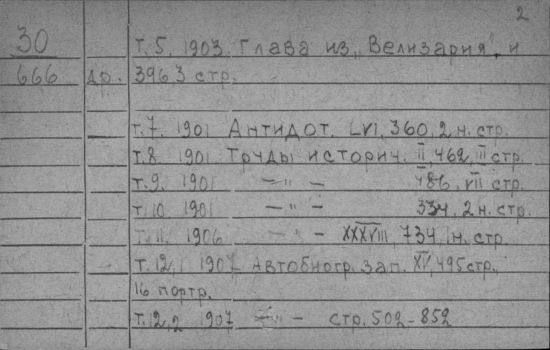 2
30 т. 5. 1903. Глава из „Велизария", и
666 др. 396 3 стр.
т. 7. 1901 Антидот. LVI, 360, 2 н. стр.
т. 8. 1901 Труды историч. II, 462, III стр.
т. 9. 1901 —"— 486, VII стр.
т. 10 1901 —"— 334, 2 н. стр.
т. 11. 1906 —"— XXXVIII, 734, 1 н. стр
т. 12,1 1907 Автобиогр. зап. XV, 495 стр.,
16 портр.
т. 12,2 1907 —"— стр. 502-852